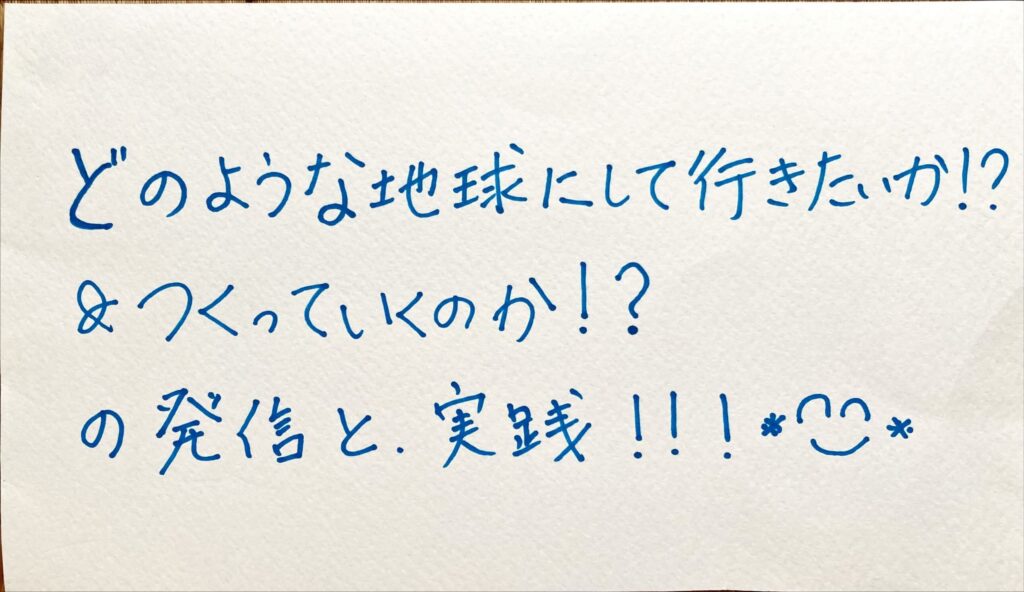 どのような地球にして行きたいか!?
&つくっていくのか!?
の発信と.実践!!!*^^*